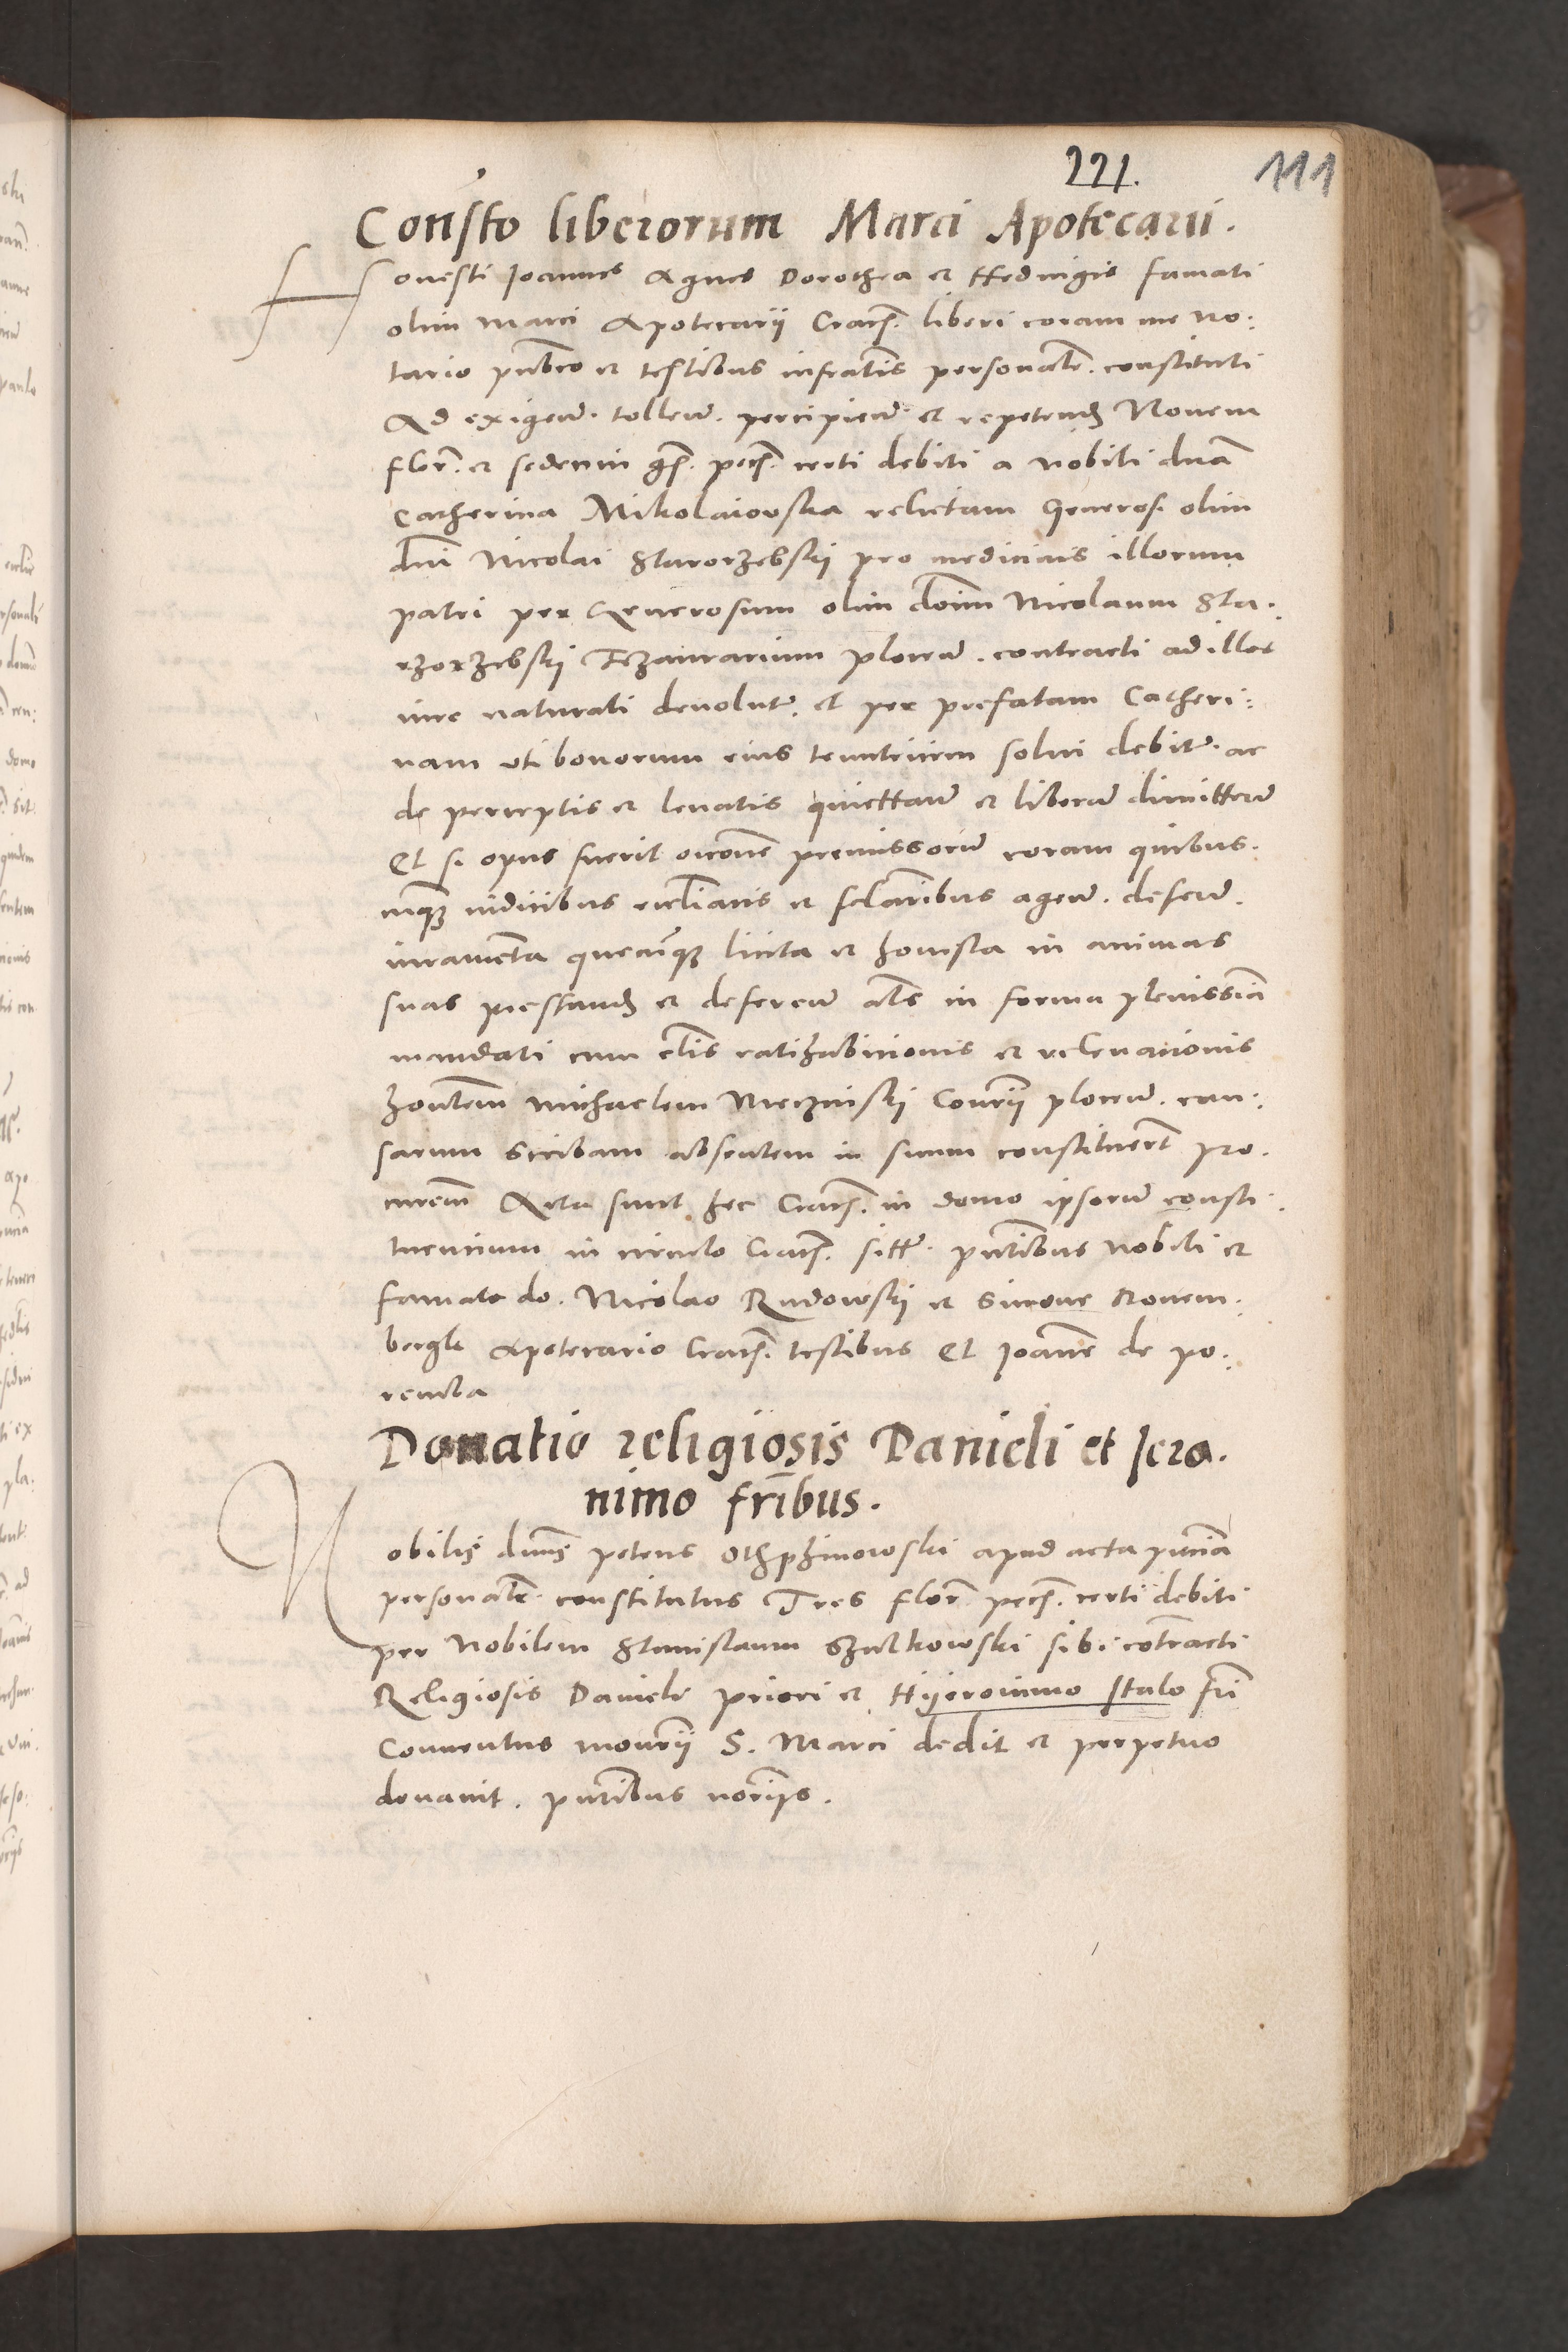 221. 111
Constto liberorum Marci Apotecarii.
Honesti Joannes Agnes Dorothea et Hedwigis famati
olim Marci Apotecarii Cracs. liberi coram me No:
tario pubco et testibus infratis personalr. constituti
Ad exigend. tollend. percipiend. et repetend Novem
flor. et sedecim gs. pecs. certi debiti a Nobili dna
Catherina Mikolaiowska relictam Generosi olim
dni Nicolai Starorzebskij pro medicinis illorum
patri per Generosum olim dnim Nicolaum Sta:
rzorzebskij Tezaurarium plocen. contracti ad illos
iure naturali devolut. et per prefatam Catheri:
nam uti bonorum eius tenutricem solvi debit. ac
de perceptis et levatis quiettand et liberand dimittend
Et si opus fuerit occone premissorum coram quibus:
cunque iudicibus ecclasticis et seclaribus agend. deferend.
iuramenta quecunque licita et honesta in animas
suas prestand et deferend als in forma plenissima
mandati cum clis ratihabicionis et relevacionis
hontem Michaelem Meczinskij Consrii plocen. cau:
sarum Scribam absentem in suum constituert pro:
curem Acta sunt hec Cracs. in domo ipsorum consti:
tuencium in circulo Cracs. sitt. pntibus Nobili et
famato do. Nicolao Rudowskij et Simone Ronem:
bergk Apotecario Cracs. testibus Et Joanne de po:
remba
Donatio religiosis Danieli et Jero:
nimo fribus.
Nobilis dnus petrus Othphinowski apud acta pntia
personalr. constitutus Tres flor. pecs. certi debiti
per Nobilem Stanislaum Szulkowski sibi contracti
Religiosis Danieli priori et Hijeronimo Italo fri
Conventus monrii S. Marci dedit et perpetuo
donavit. pntibus noriis.